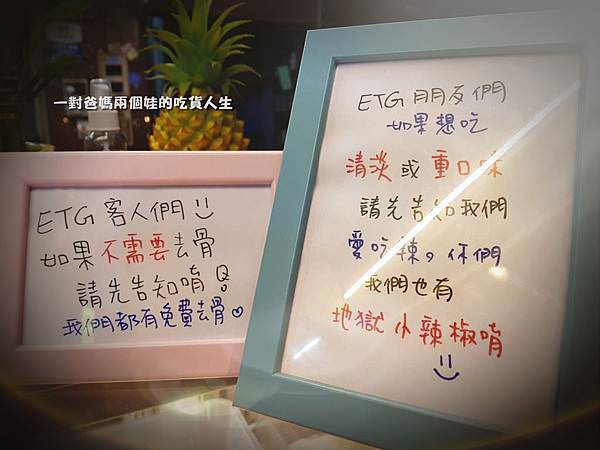 一對爸媽兩個娃的吃貨人生
ETG 客人們
如果不需要去骨
請先告知唷
我們都有免費去骨♡
ETG 朋友們
如果想吃
清淡或重口味
請先告知我們
愛吃辣，你們
我們也有
地獄小辣椒唷